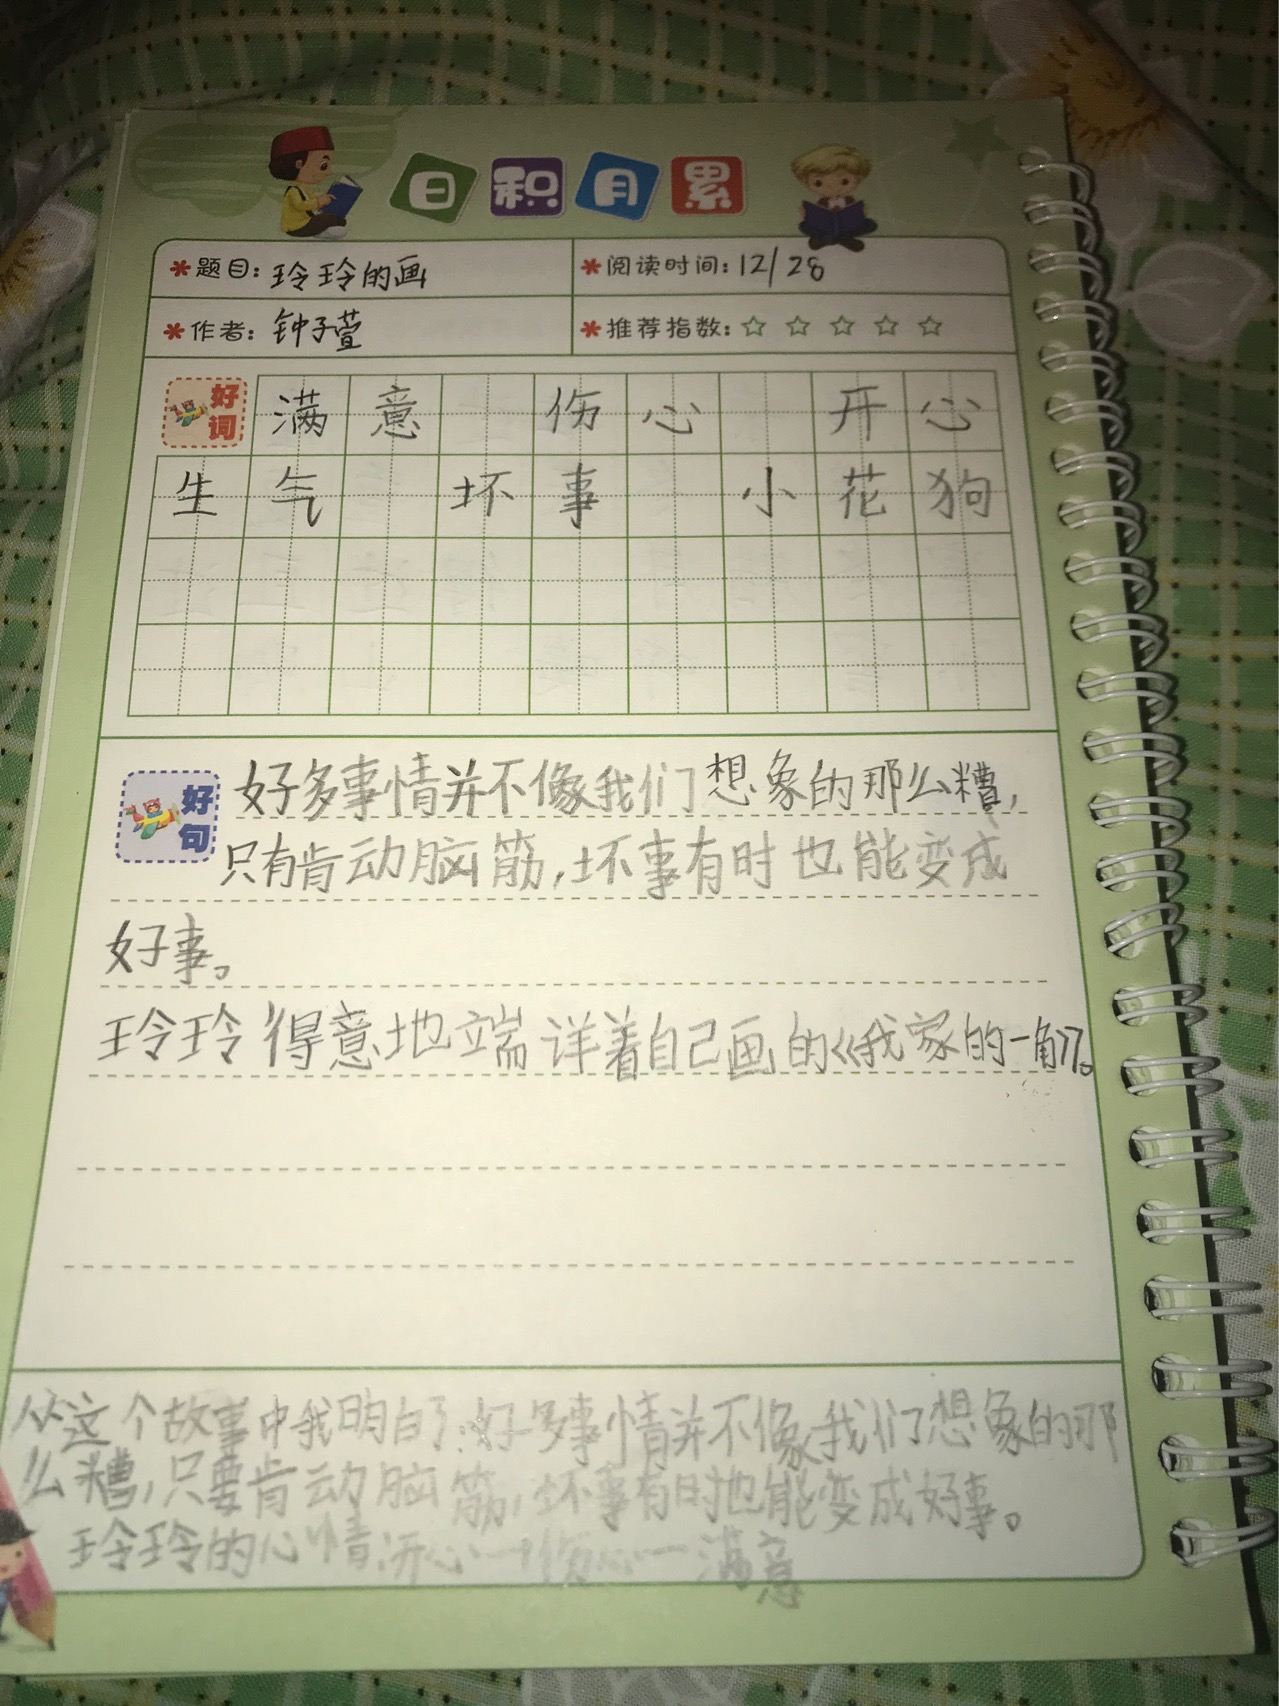 日积月累
题目：玲玲的画 阅读时间：12/28
作者：钟子萱 推荐指数：☆☆☆☆☆
好词 满意 伤心 开心
生气 坏事 小花狗
好句 好多事情并不像我们想象的那么糟，
只有肯动脑筋，坏事有时也能变成
好事。
玲玲得意地端详着自己画的《我家的一角》。
从这个故事中我明白了：好多事情并不像我们想象的那
么糟，只要肯动脑筋，坏事有时也能变成好事。
玲玲的心情：开心一伤心一满意